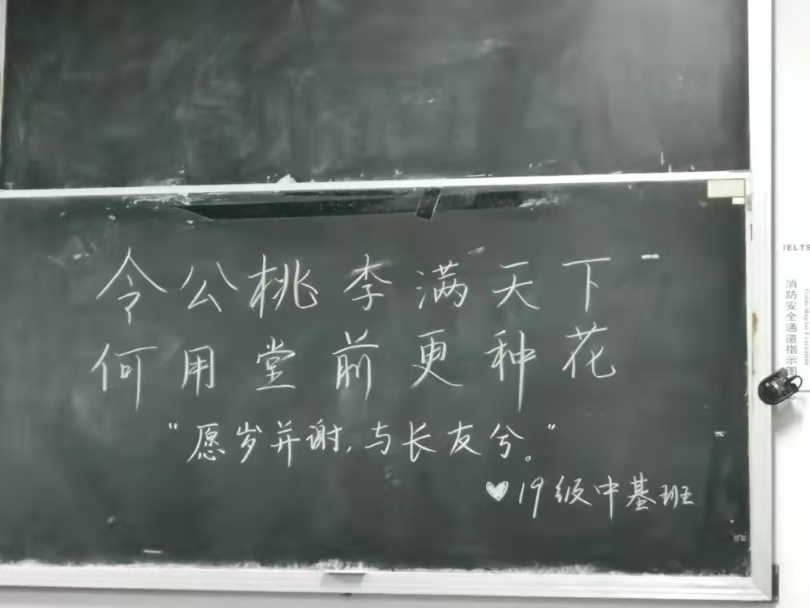 令公桃李满天下
何用堂前更种花
“愿岁并谢，与长友兮。”
♥19级中基班
IELTS
消防安全通道指示图